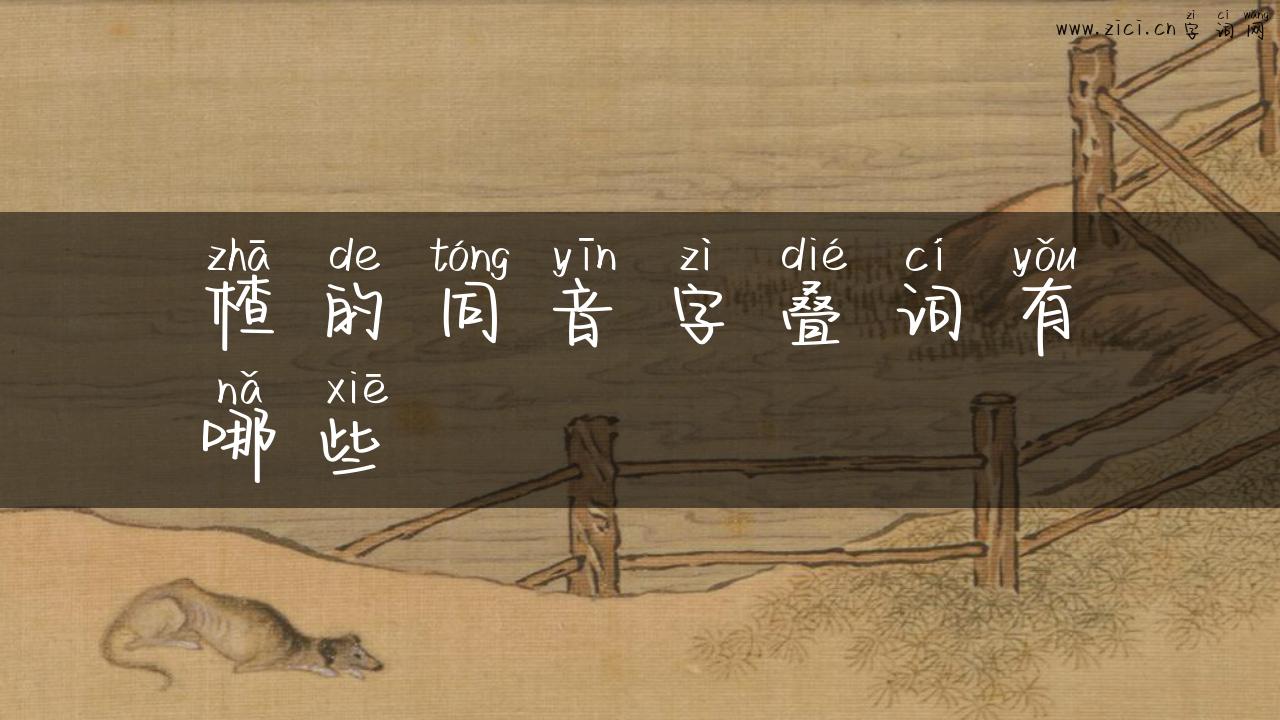 zi ci wang
www.zici.cn字词网
zhā de tóng yīn zì dié cí yǒu
楂的同音字叠词有
nǎ xiē
哪些